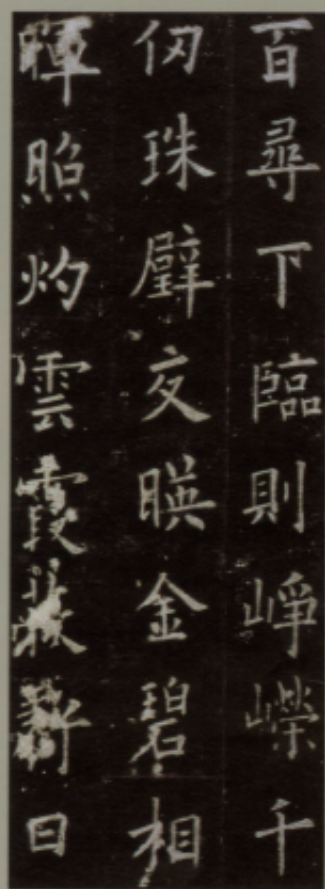 百尋下臨則崢嶸千
仞珠璧交暎金碧相
暉照灼雲霞蔽虧日